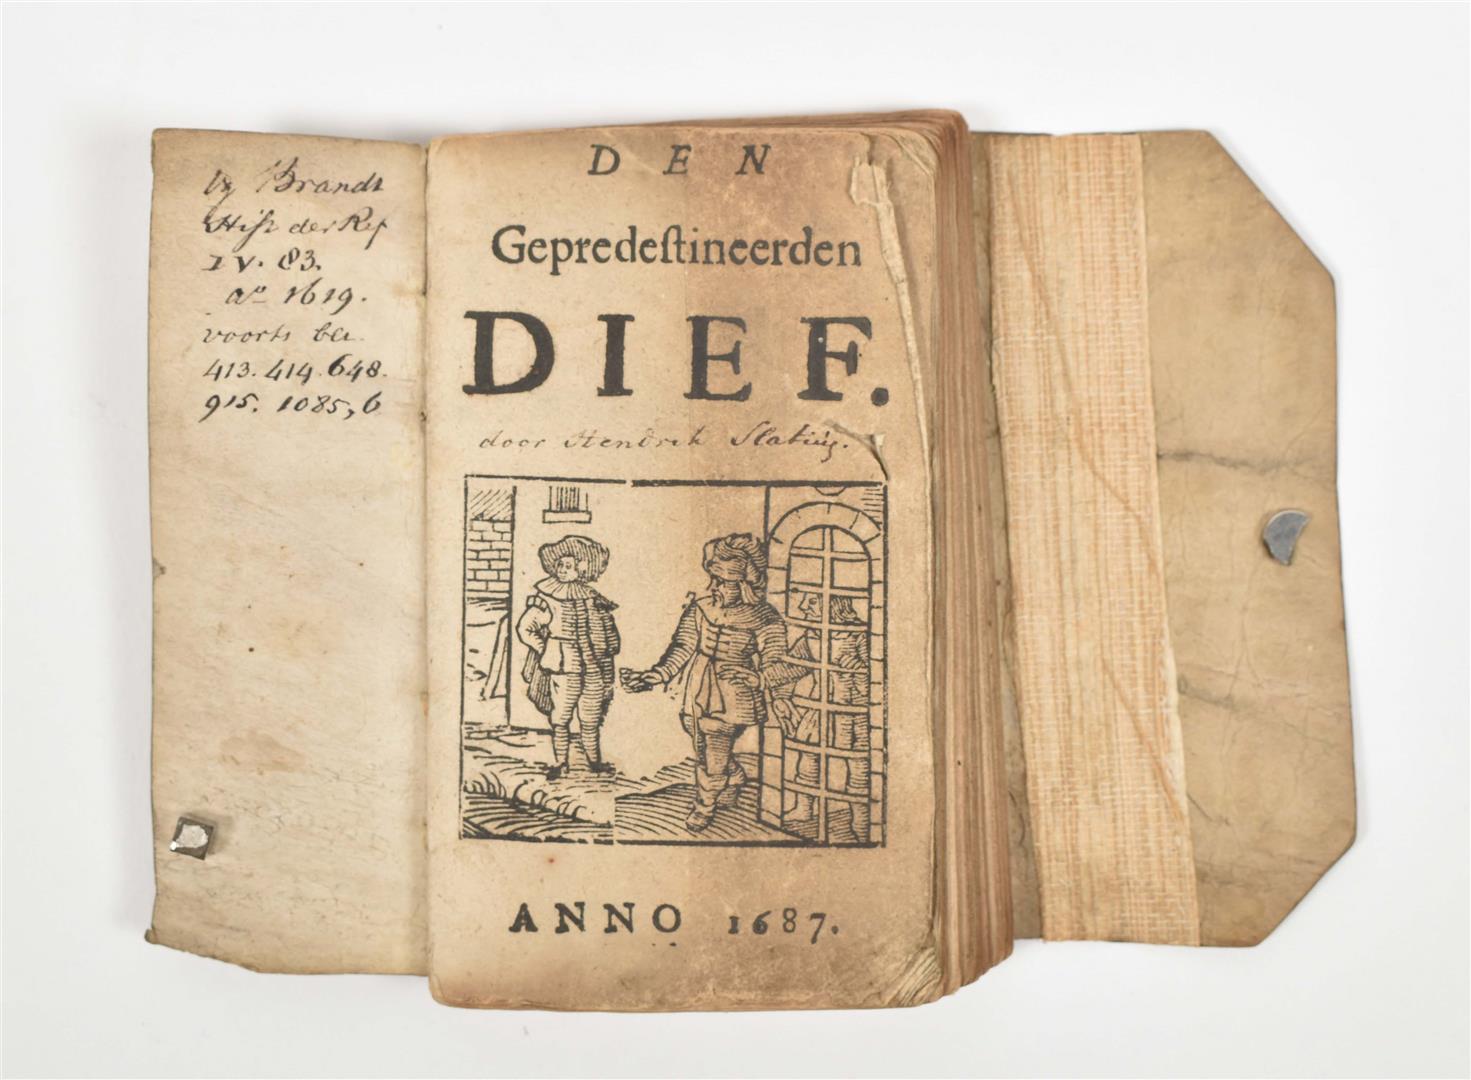 by Brandt
Hist der Ref
IV. 83.
ao 1619.
voorts
413. 414. 648.
915. 1085, 6
DEN
Gepredestineerden
DIEF.
door Hendrik Slatius.
ANNO 1687.